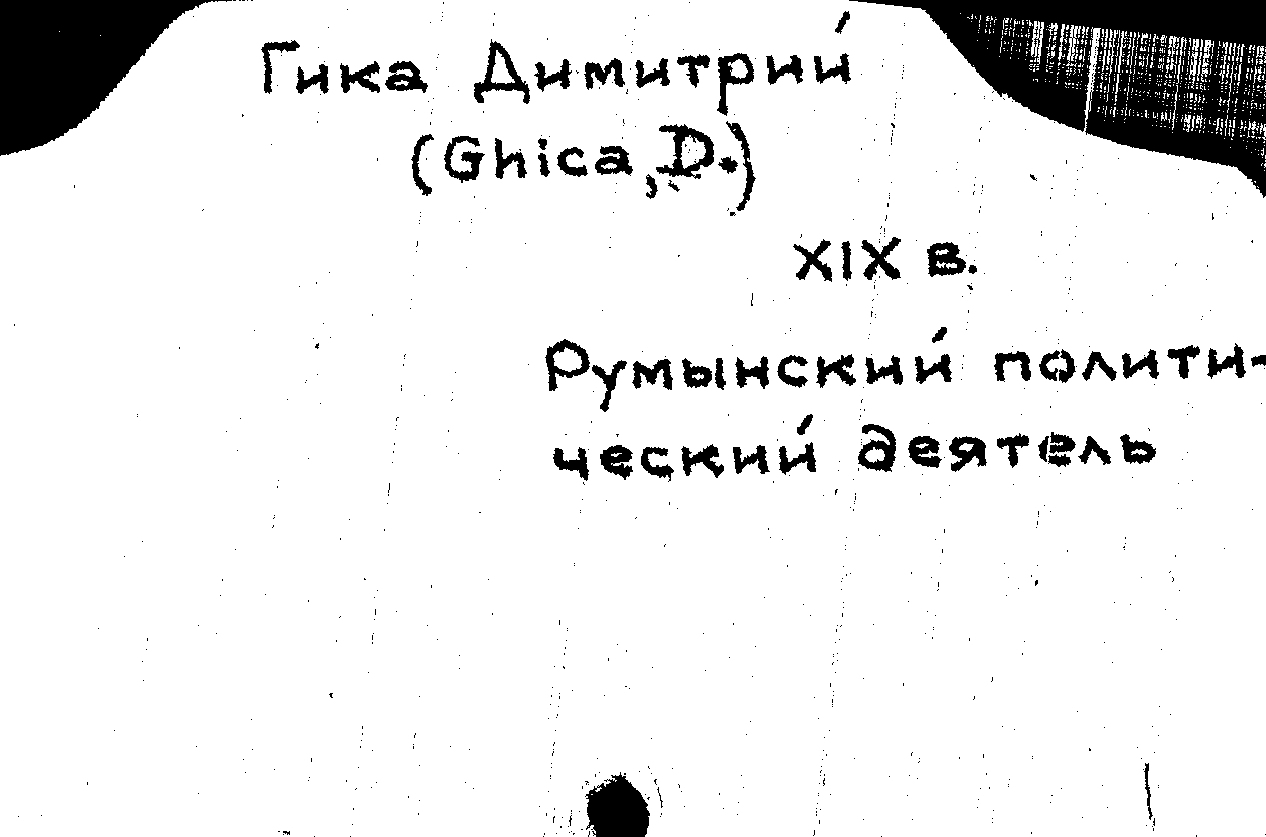 Гика Димитрий
(Ghica, D.)
XIX в.
Румынский полити-
ческий деятель